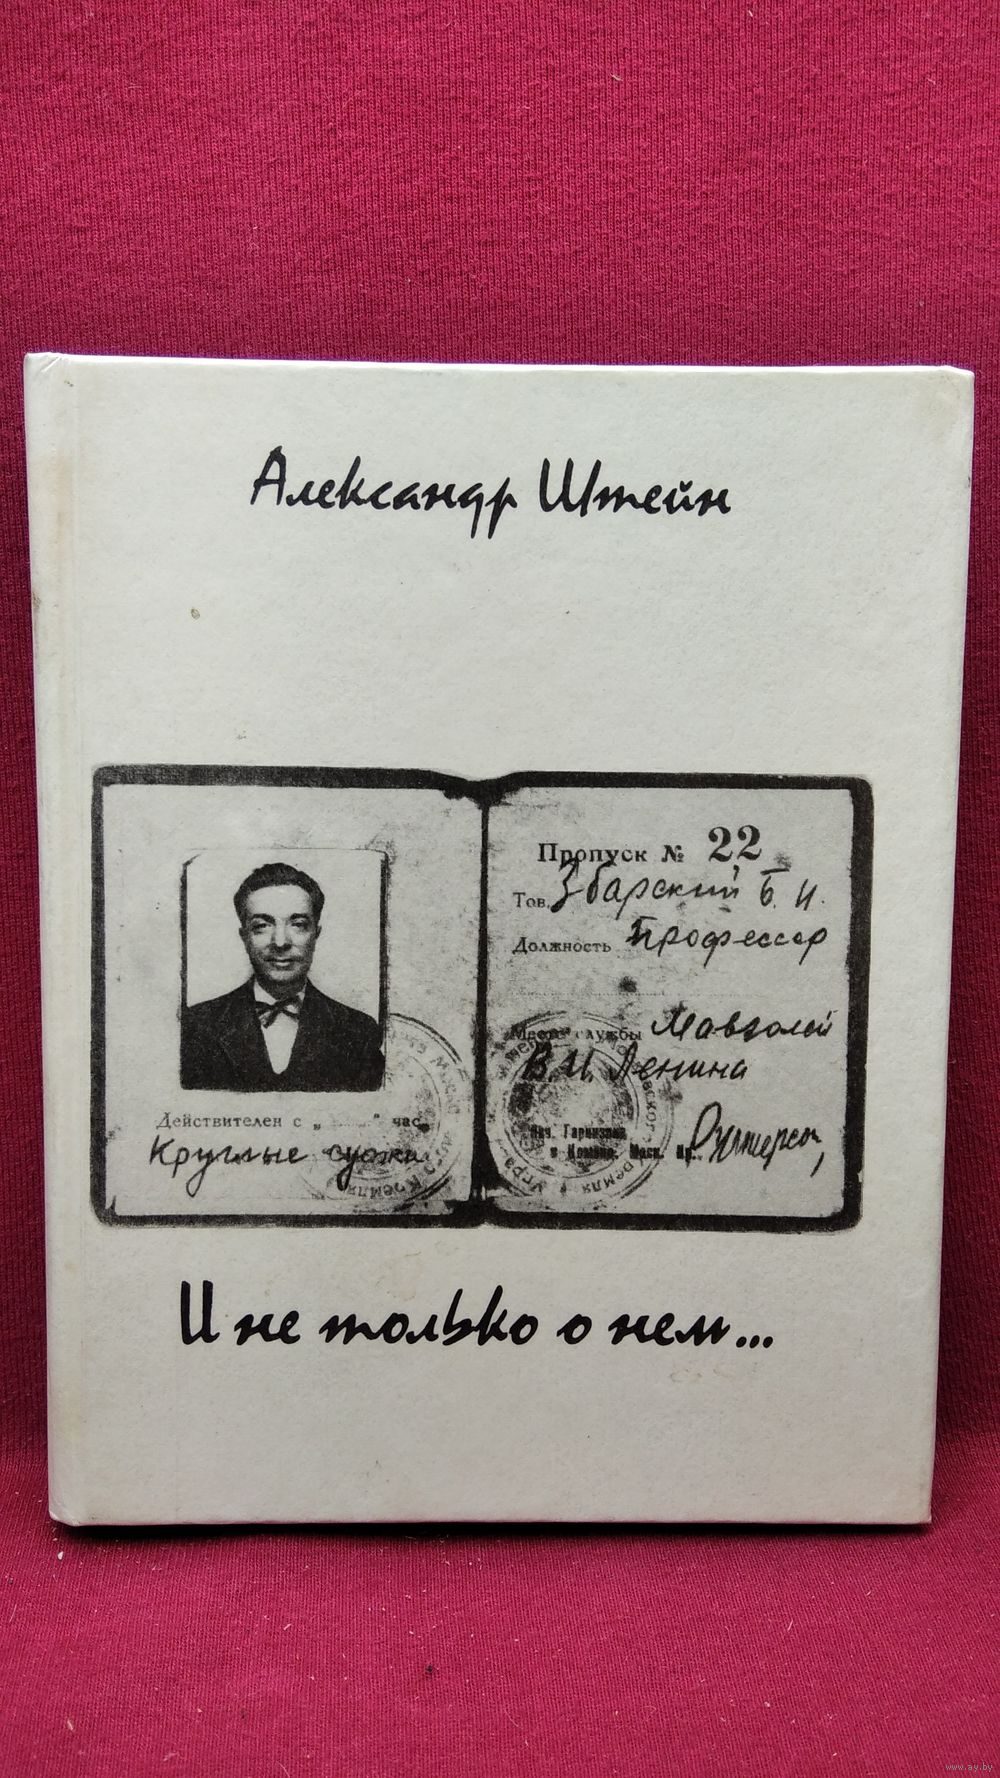 Александр Штейн
Пропуск № 22
Тов. Збарский Б. И.
Должность Профессор
Место службы Мавзолей
В. И. Ленина
Нач. Гарнизона
и Коменд. Моск. Кр.
Действителен с „ “ час.
Круглые сутки
И не только о нем...
www.ay.by